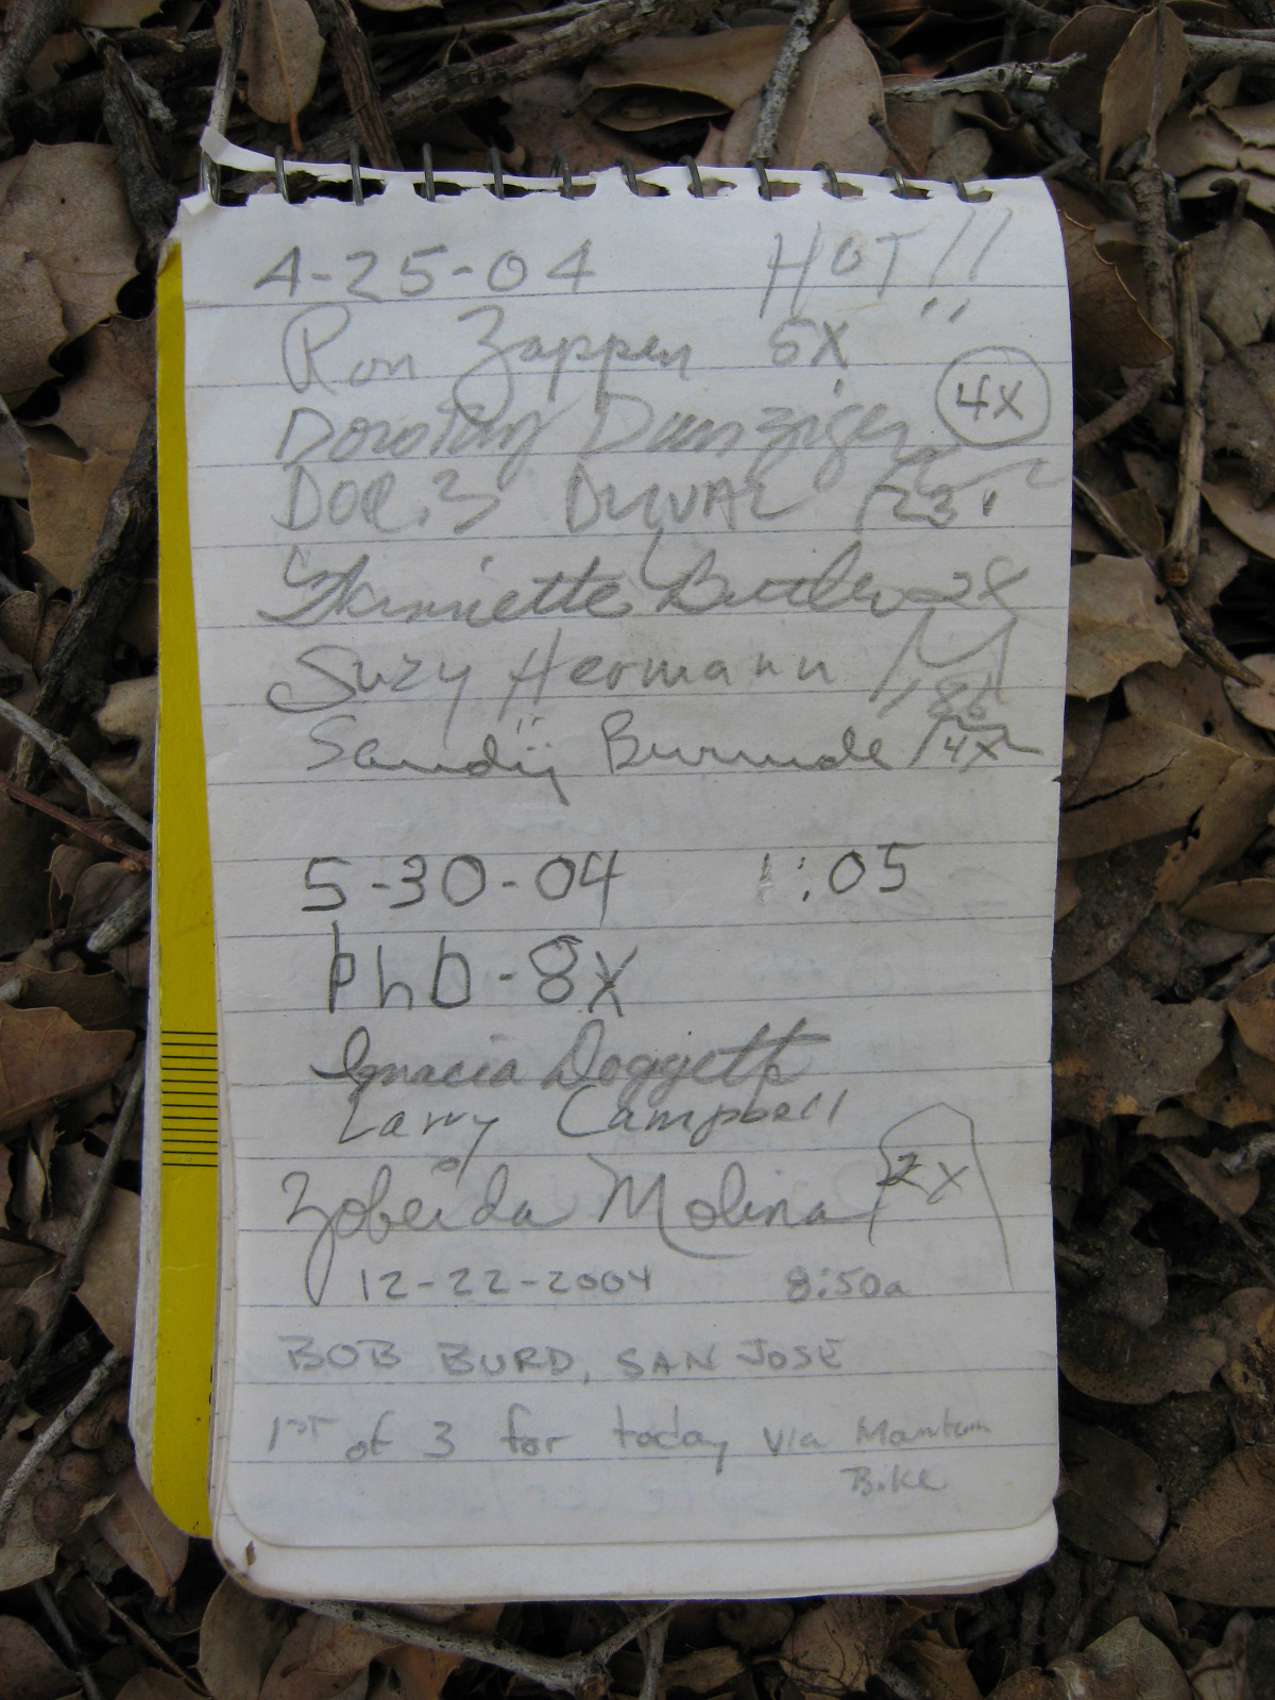 4-25-04 HOT!!
Ron Zappen 5X
Dorothy Danziger 4X
DORIS DUVAL 23
Henriette Butler 2X
Suzy Hermann 186
Sandy Burnside 4X
5-30-04 1:05
PhD-8X
Ignacia Doggett
Larry Campbell
Zobeida Molina 2X
12-22-2004 8:50a
BOB BURD, SAN JOSE
1ST of 3 for today via Mountain
Bike